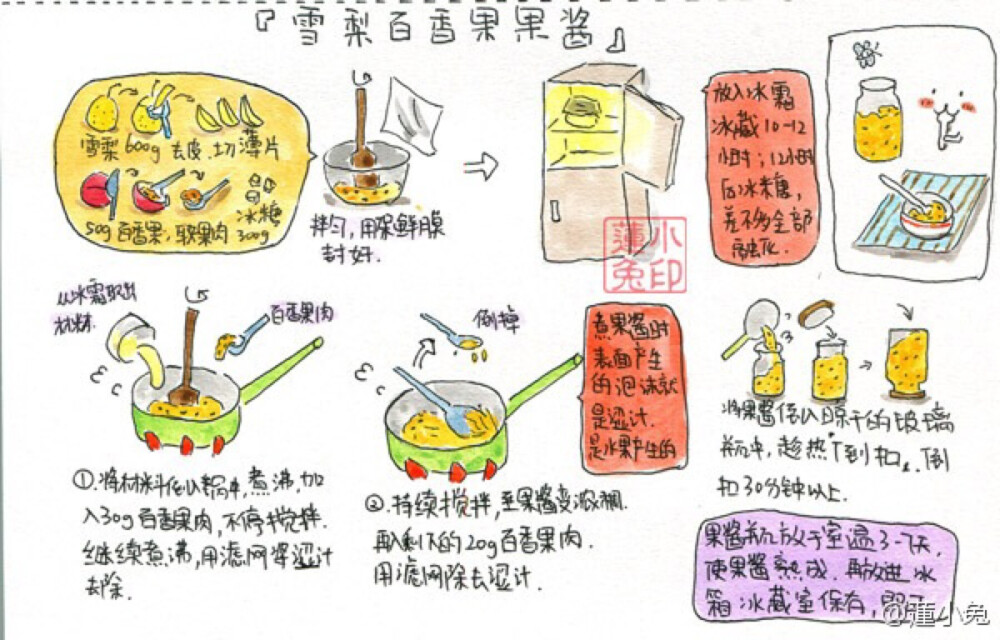 『雪梨百香果果酱』
雪梨600g 去皮、切薄片
冰糖
300g
50g百香果,取果肉
拌匀,用保鲜膜
封好.
放入冰霜
冰藏10-12
小时;12小时
后冰糖,
差不多全部
融化.
蓮小
兔印
从冰霜取出
材料.
百香果肉
①.将材料倒入锅中,煮沸,加
入30g百香果肉,不停搅拌.
继续煮沸,用滤网将涩汁
去除.
倒掉
②.持续搅拌,至果酱变浓稠.
再入剩下的20g百香果肉.
用滤网除去涩汁.
煮果酱时
表面产生
的泡沫就
是涩汁.
是水果产生的
将果酱倒入晾干的玻璃
瓶中,趁热「倒扣」,倒
扣30分钟以上.
果酱瓶放于室温3-7天,
使果酱熟成.再放进冰
箱冰藏室保存,即可.
@蓮小兔